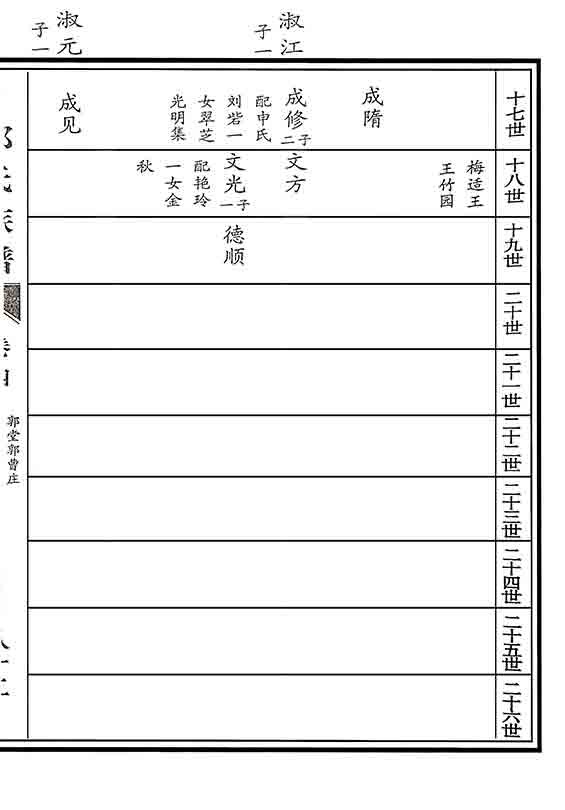 淑江
子一
淑元
子一
十七世
成隋
成修
子二
配申氏
刘砦一
女翠芝
光明集
成见
十八世
梅适王
王竹园
文方
文光
子一
配艳玲
一女金
秋
十九世
德顺
二十世
二十一世
二十二世
二十三世
二十四世
二十五世
二十六世
郭堂郭曹庄